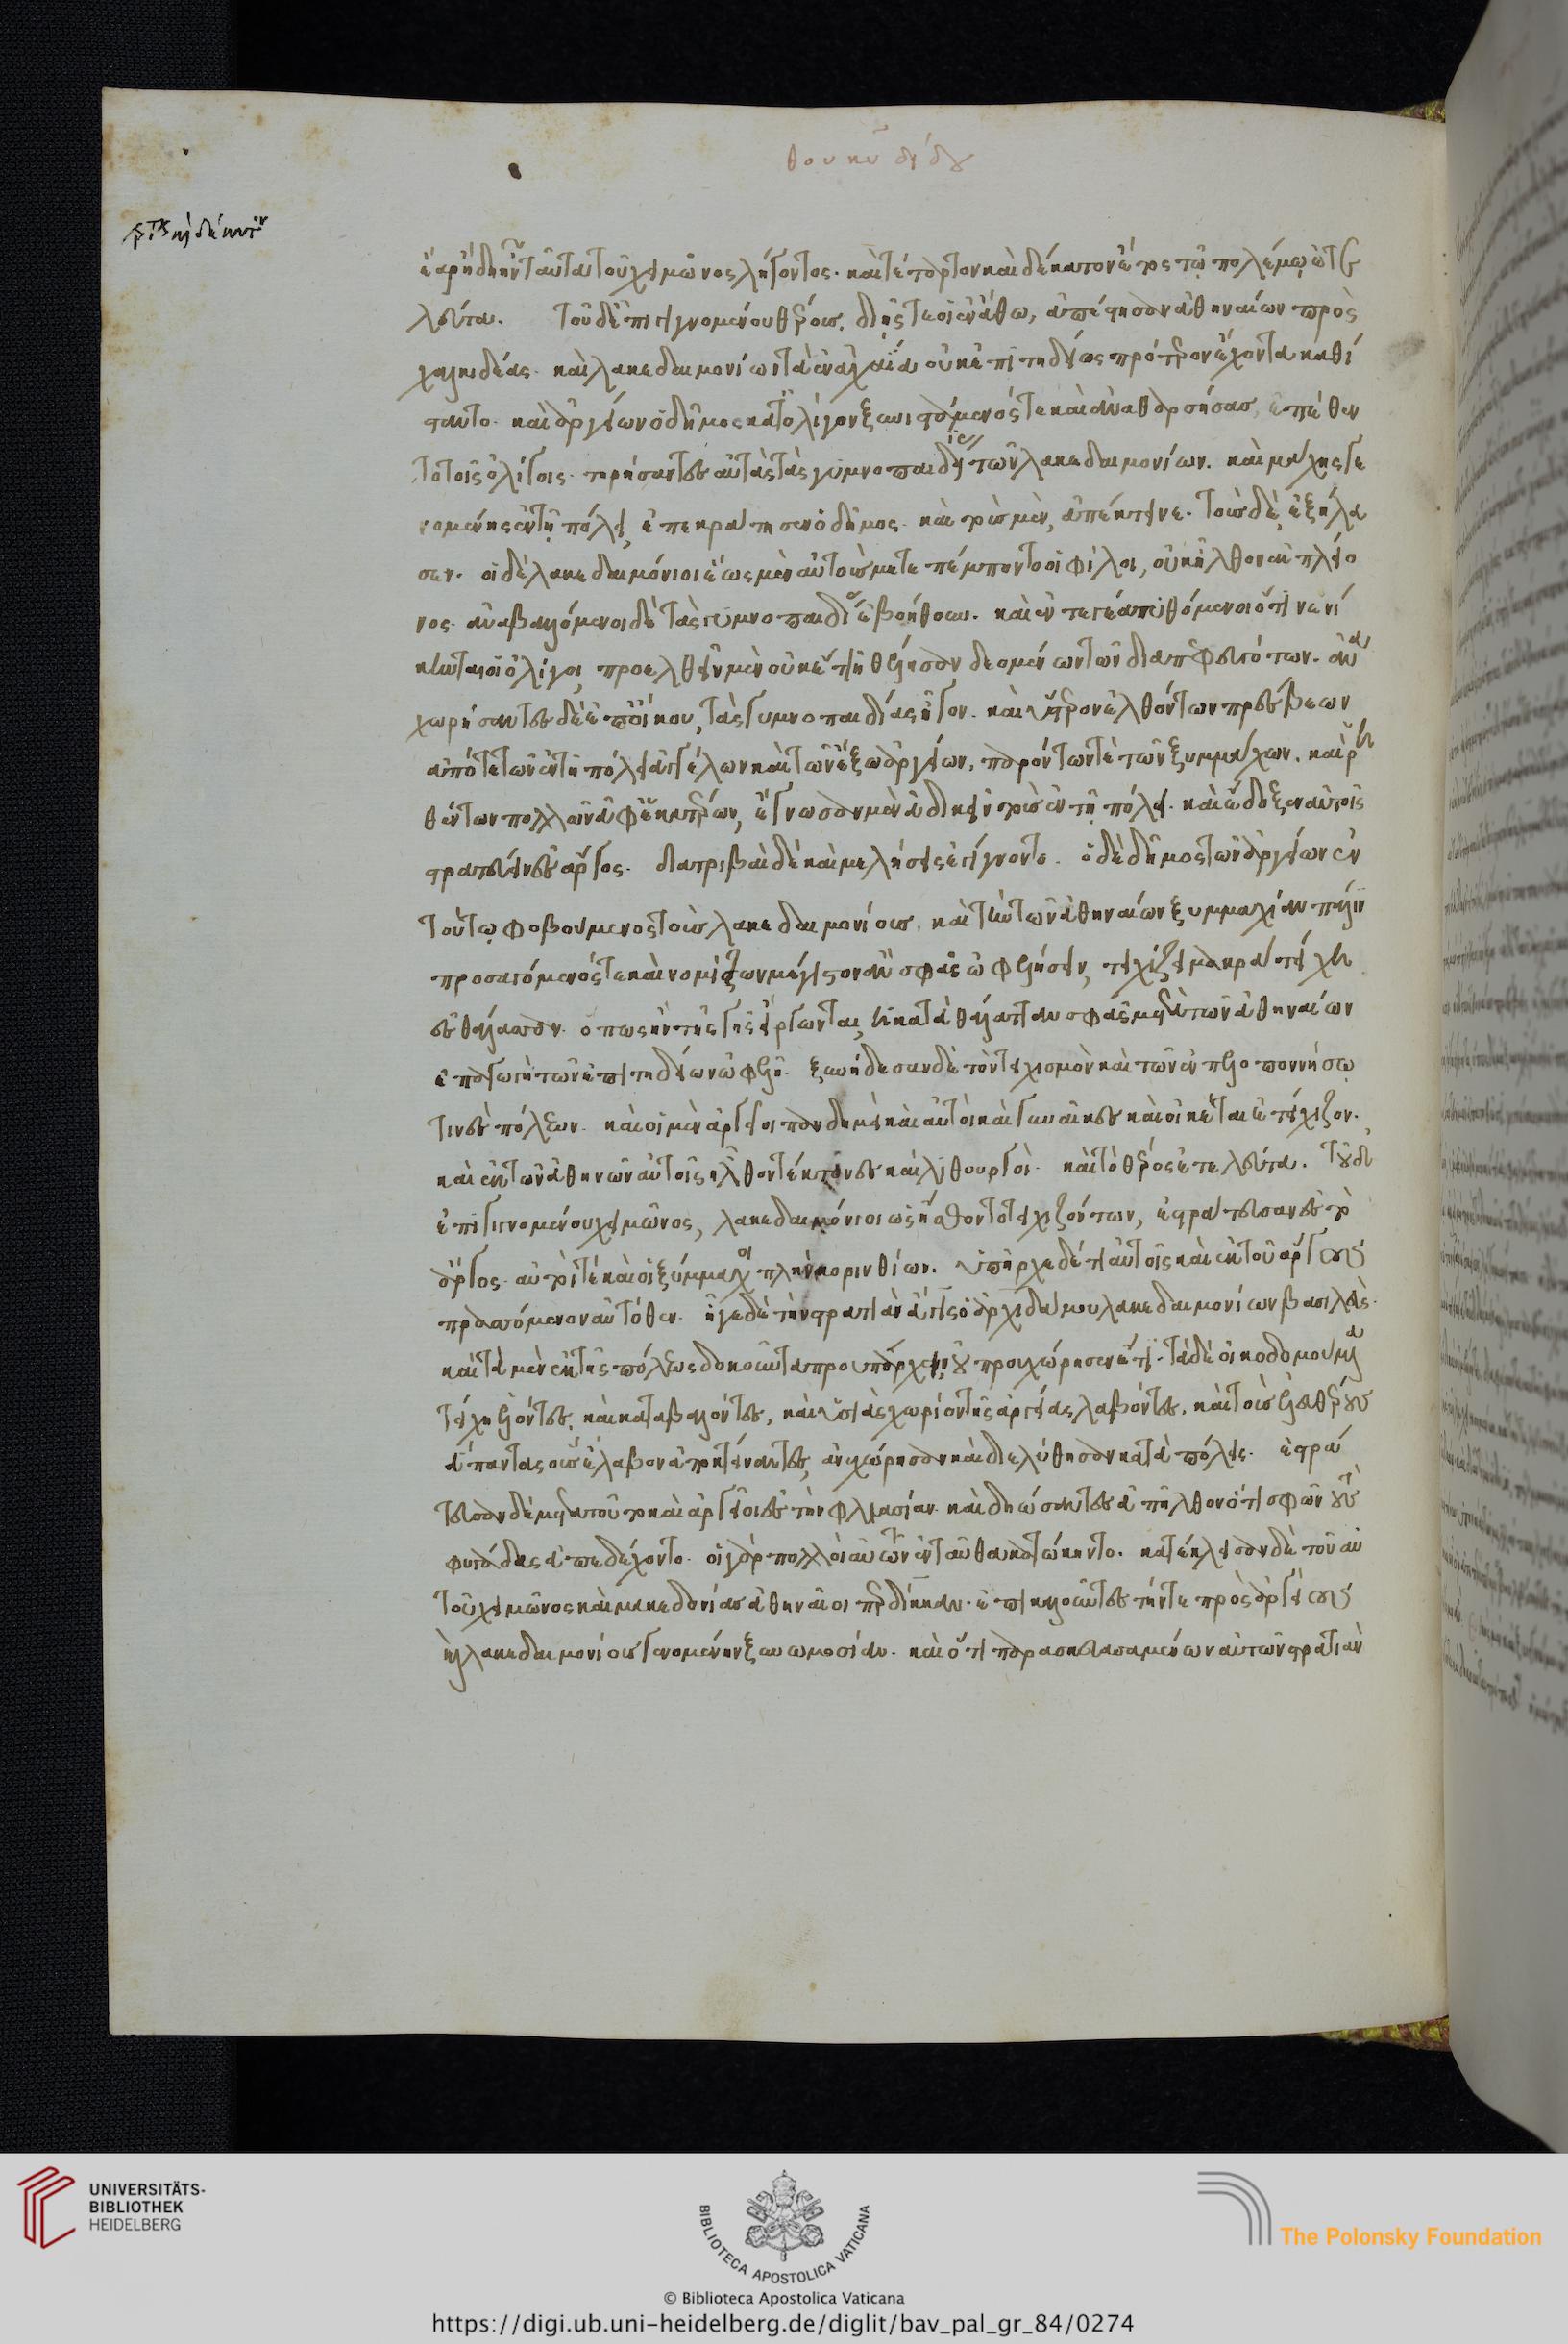 θουκυδίδου
ἔαρ ἤδη ἦν ταῦτα τοῦ χειμῶνος λήγοντος. καὶ τέταρτον καὶ δέκατον ἔτος τῷ πολέμῳ ἐτε
λεύτα. Τοῦ δ' ἐπιγιγνομένου θέρους, διῆς τε οἱ ἐν ἄθω, ἀπέστησαν ἀθηναίων πρὸς
χαλκιδέας. καὶ λακεδαιμόνιοι τὰ ἐν ἀχαΐα οὐκ ἐπιτηδείως πρότερον ἔχοντα καθί
σταντο. καὶ ἀργείων ὁ δῆμος κατ' ὀλίγον ξυνιστάμενός τε καὶ ἀναθαρσήσας, ἐπέθεν
το τοῖς ὀλίγοις. τηρήσαντες αὐτὰς τὰς γυμνοπαιδίας τῶν λακεδαιμονίων. καὶ μάχης γε
νομένης ἐν τῇ πόλει, ἐπεκράτησεν ὁ δῆμος. καὶ τοὺς μὲν, ἀπέκτεινε. τοὺς δὲ, ἐξήλα
σεν. οἱ δὲ λακεδαιμόνιοι ἕως μὲν αὐτοὺς μετεπέμποντο οἱ φίλοι, οὐκ ἦλθον ἐκ πλείο
νος. ἀναβαλόμενοι δὲ τὰς γυμνοπαιδίας ἐβοήθουν. καὶ ἐν τεγέα πυθόμενοι ὅτι νενί
κηνται οἱ ὀλίγοι, προελθεῖν μὲν οὐκέτι ἠθέλησαν δεομένων τῶν διαπεφευγότων. ἀνα
χωρήσαντες δὲ ἐπ' οἴκου, τὰς γυμνοπαιδίας ἦγον. καὶ ὕστερον ἐλθόντων πρέσβεων
ἀπό τε τῶν ἐν τῇ πόλει ἀγγέλων καὶ τῶν ἔξω ἀργείων, παρόντων τὲ τῶν ξυμμάχων. καὶ ῥη
θέντων πολλῶν ἀφ' ἑκατέρων, ἔγνωσαν μὲν ἀδικεῖν τοὺς ἐν τῇ πόλει. καὶ ἔδοξεν αὐτοῖς
στρατεύειν ἐς ἄργος. διατριβαὶ δὲ καὶ μελήσεις ἐγίγνοντο. ὁ δὲ δῆμος τῶν ἀργείων ἐν
τούτῳ φοβούμενος τοὺς λακεδαιμονίους. καὶ τὴν τῶν ἀθηναίων ξυμμαχίαν πάλιν
προσαγόμενός τε καὶ νομίζων μέγιστον ἂν σφᾶς ὠφελήσειν, τειχίζει μακρὰ τείχη
ἐς θάλασσαν. ὅπως ἢν τῆς γῆς εἴργωνται, ἡ κατὰ θάλατταν σφᾶς μετὰ τῶν ἀθηναίων
ἐπαγωγὴ τῶν ἐπιτηδείων ὠφελῆ. ξυνήδεσαν δὲ τὸν τειχισμὸν καὶ τῶν ἐν πελοποννήσῳ
τινὲς πόλεων. καὶ οἱ μὲν ἀργεῖοι πανδημεὶ καὶ αὐτοὶ καὶ γυναῖκες καὶ οἰκέται ἐτείχιζον.
καὶ ἐκ τῶν ἀθηνῶν αὐτοῖς ἦλθον τέκτονες καὶ λιθουργοί. καὶ τὸ θέρος ἐτελεύτα. Τοῦ δ'
ἐπιγιγνομένου χειμῶνος, λακεδαιμόνιοι ὡς ᾔσθοντο τειχιζόντων, ἐστράτευσαν ἐς τὸ
ἄργος. αὐτοί τε καὶ οἱ ξύμμαχοι πλὴν κορινθίων. ὑπῆρχε δέ τι αὐτοῖς καὶ ἐκ τοῦ ἄργους
πρασσόμενον αὐτόθεν. ἦγε δὲ τὴν στρατιὰν ἆγις ὁ ἀρχιδάμου λακεδαιμονίων βασιλεύς.
καὶ τὰ μὲν ἐκ τῆς πόλεως δοκοῦντα προυπάρχειν, οὐ προυχώρησεν ἔτι. τὰ δὲ οἰκοδομούμενα
τείχη ἑλόντες, καὶ καταβαλόντες, καὶ ὑσιὰς χωρίον τῆς ἀργείας λαβόντες. καὶ τοὺς ἐλευθέρους
ἅπαντας οὓς ἔλαβον ἀποκτείναντες, ἀνεχώρησαν καὶ διελύθησαν κατὰ πόλεις. ἐστρά
τευσαν δὲ μετὰ τοῦτο καὶ ἀργεῖοι ἐς τὴν φλιασίαν. καὶ δῃώσαντες ἀπῆλθον ὅτι σφῶν τοὺς
φυγάδας ὑπεδέχοντο. οἱ γὰρ πολλοὶ αὐτῶν ἐνταῦθα κατώκηντο. κατέκλεισαν δὲ τοῦ αὐ
τοῦ χειμῶνος καὶ μακεδονίας ἀθηναῖοι περδίκκαν. ἐπικαλοῦντες τήν τε πρὸς ἀργείους
καὶ λακεδαιμονίους γενομένην ξυνωμοσίαν. καὶ ὅτι παρασκευασαμένων αὐτῶν στρατιὰν
UNIVERSITÄTS-
BIBLIOTHEK
HEIDELBERG
BIBLIOTECA APOSTOLICA VATICANA
The Polonsky Foundation
© Biblioteca Apostolica Vaticana
https://digi.ub.uni-heidelberg.de/diglit/bav_pal_gr_84/0274